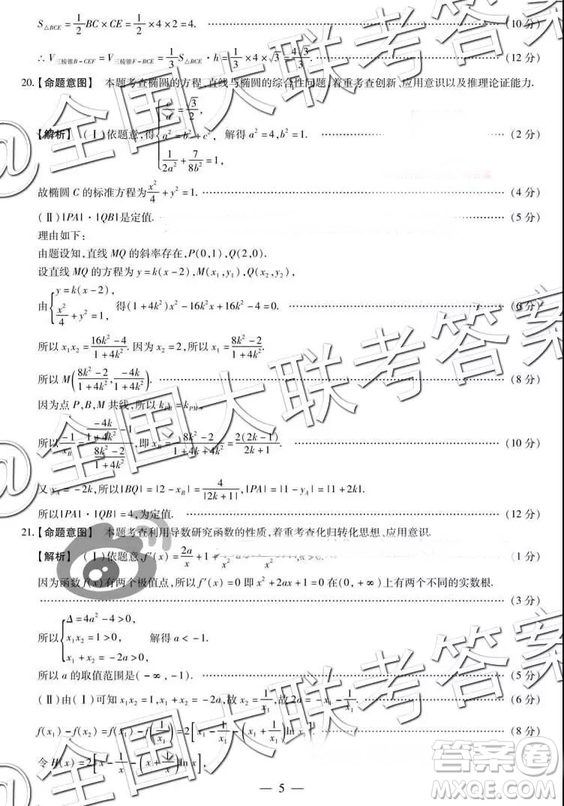 S△BCE = 1/2 BC × CE = 1/2 × 4 × 2 = 4. (10 分)
∴ V三棱锥B-CEF = V三棱锥F-BCE = 1/3 S△BCE · h = 1/3 × 4 × √3 = 4√3/3. (12 分)
20.【命题意图】 本题考查椭圆的方程、直线与椭圆的综合性问题,着重考查创新、应用意识以及推理论证能力.
【解析】 (Ⅰ)依题意,得 { √3/2, a² = b² + c², 1/2a² + 7/8b² = 1, 解得 a² = 4, b² = 1. (2 分)
故椭圆 C 的标准方程为 x²/4 + y² = 1. (4 分)
(Ⅱ)|PA|·|QB|是定值. (5 分)
理由如下:
由题设知,直线 MQ 的斜率存在,P(0,1),Q(2,0).
设直线 MQ 的方程为 y = k(x-2),M(x₁,y₁),Q(x₂,y₂),
由 { y = k(x-2), x²/4 + y² = 1, 得(1+4k²)x² - 16k²x + 16k² - 4 = 0. (6 分)
所以 x₁x₂ = (16k²-4)/(1+4k²). 因为 x₂ = 2,所以 x₁ = (8k²-2)/(1+4k²),
所以 M(8k²-2/1+4k², -4k/1+4k²). (8 分)
因为点 P,B,M 共线,所以
所以 即 x_B = (8k²-2)/(1+4k+4k²) = 2(2k-1)/(2k+1). (10 分)
又 y_A = -2k,所以|BQ| = |2 - x_B| = 4/|2k+1|,|PA| = |1 - y_A| = |1+2k|.
所以|PA|·|QB| = 4,为定值. (12 分)
21.【命题意图】 本题考查利用导数研究函数的性质,着重考查化归转化思想、应用意识.
【解析】 (Ⅰ)依题意,f′(x) = 2a/x + 1 + (1 分)
因为函数 f(x)有两个极值点,所以 f′(x) = 0 即 x² + 2ax + 1 = 0 在(0,+∞)上有两个不同的实数根.
(3 分)
所以 { Δ = 4a² - 4 > 0, x₁x₂ = 1 > 0, x₁ + x₂ = -2a > 0, 解得 a < -1.
所以 a 的取值范围是(-∞,-1). (5 分)
(Ⅱ)由(Ⅰ)可知 x₁x₂ = 1,x₁ + x₂ = -2a,故 x₂ = 1/x₁,故 2a = -x₁ - 1/x₁. (6 分)
f(x₁) - f(x₂) = f(x₁) - f(1/x₁) = 2[x₁ - 1/x₁ - (x₁ + 1/x₁)ln x₁] (8 分)
令 H(x) = 2[x - 1/x - (x + 1/x)ln x],
— 5 —
@全国大联考答案
答案圈